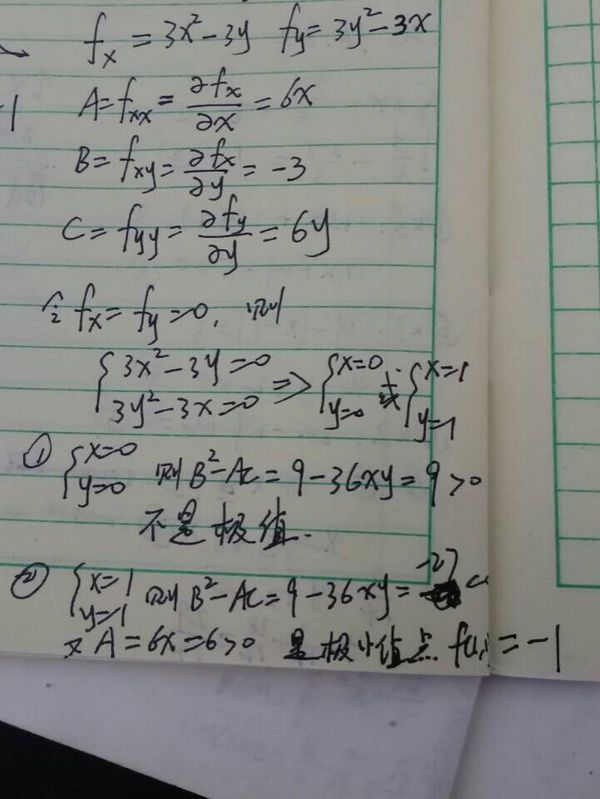 fx = 3x²-3y fy = 3y²-3x
-1
A = fxx = ∂fx/∂x = 6x
B = fxy = ∂fx/∂y = -3
C = fyy = ∂fy/∂y = 6y
令 fx = fy = 0, 则
{3x²-3y=0 3y²-3x=0 ⇒ {x=0 y=0 或 {x=1 y=1
① {x=0 y=0 则 B²-AC = 9-36xy = 9 > 0
不是极值.
② {x=1 y=1 则 B²-AC = 9-36xy = -27 <
又 A = 6x = 6 > 0 是极小值点 f(1,1) = -1